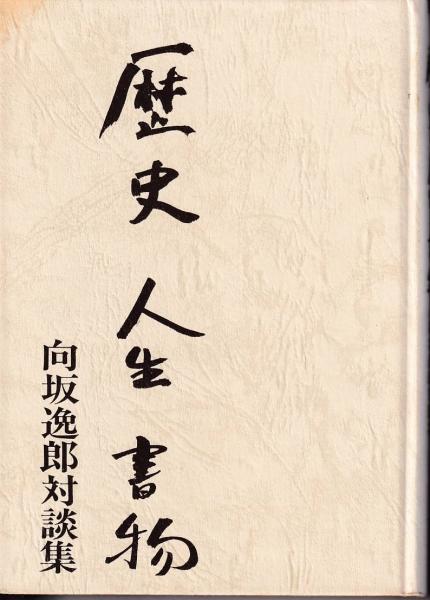 歴史 人生 書物
向坂逸郎対談集